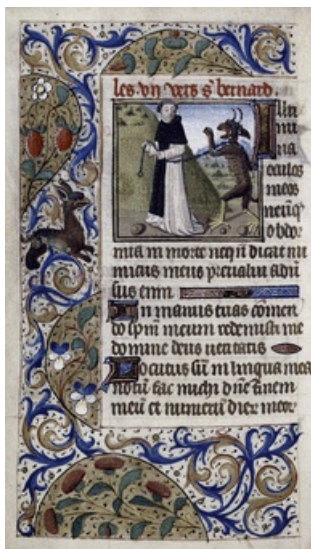 les vij vers s bernard.
Illu
mi
na
oculos
meos
neuq̃
obdor
mia in morte neqñ dicat ini
micus meus preualui adũ
sus eum
In manus tuas cõmen
do sp̃m meum redemisti me
domine deus ueritatis
Locutus sũ in lingua mea
notũ fac michi dñe finem
meũ et numerũ dier meor